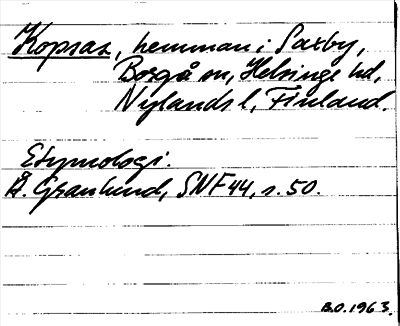 Kopsas, hemman i Saxby,
Borgå sn, Helsinge hd,
Nylands l, Finland.
Etymologi.
Å. Granlund, SNF 44, s. 50.
B.O. 1963.